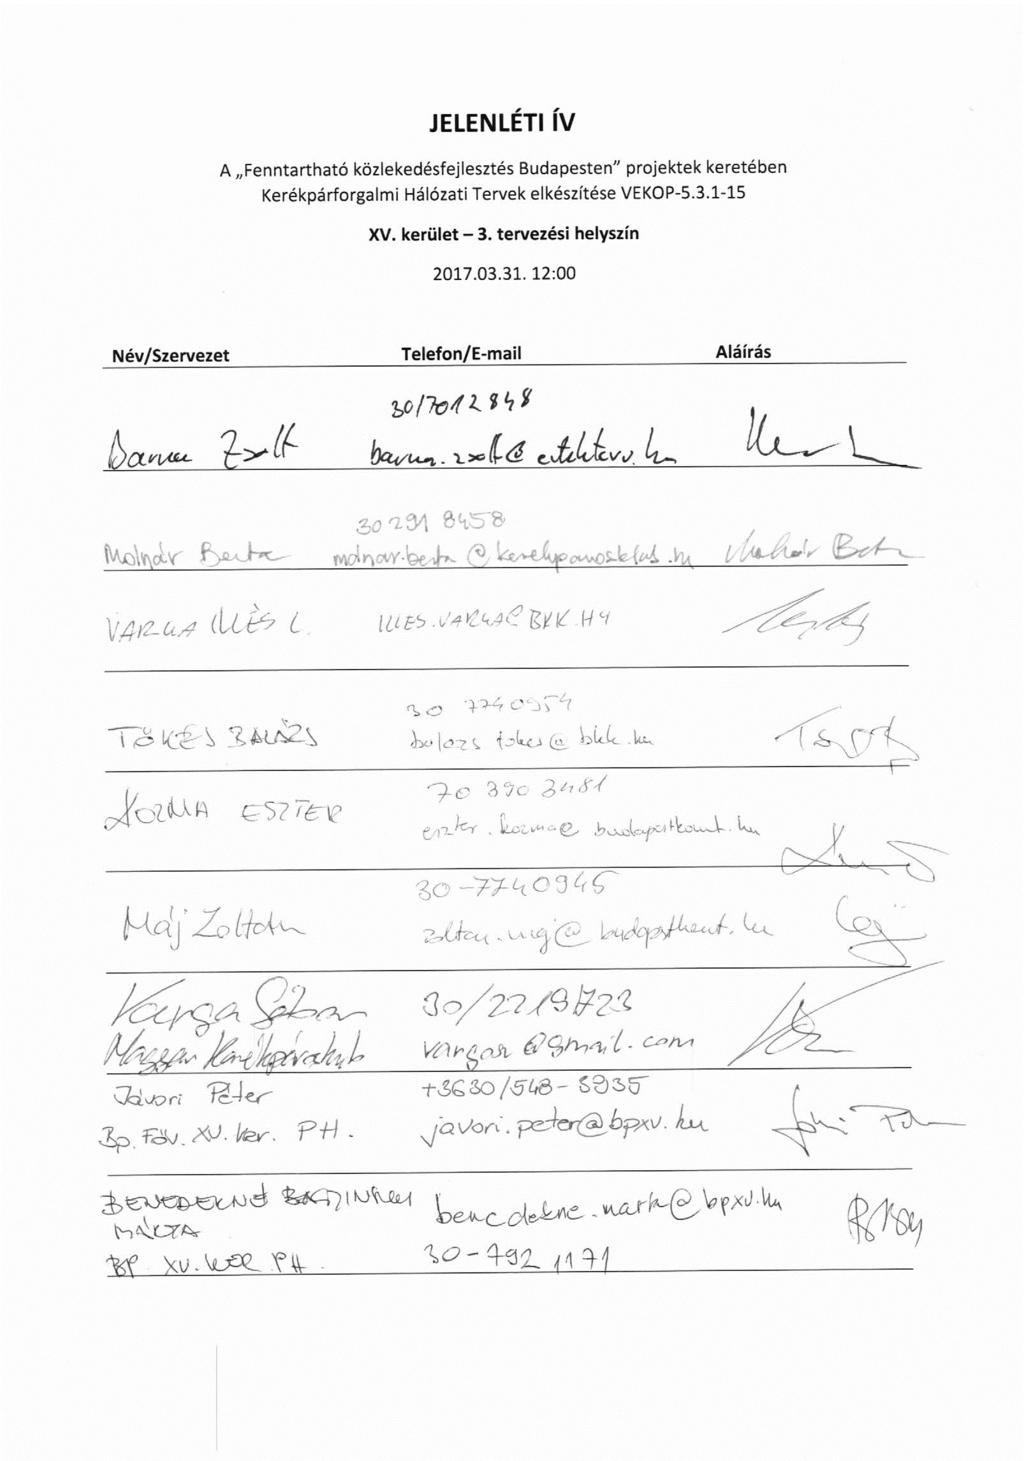 JELENLÉTI ÍV
A „Fenntartható közlekedésfejlesztés Budapesten” projektek keretében
Kerékpárforgalmi Hálózati Tervek elkészítése VEKOP-5.3.1-15
XV. kerület – 3. tervezési helyszín
2017.03.31. 12:00
Név/Szervezet Telefon/E-mail Aláírás
30/7012848
Barna Zsolt
30 291 8458
Molnár Berta molnar.berta@kerekparosklub.hu Molnár Berta
VARGA ILLÉS L. ILLES.VARGA@BKK.HU
30 7740954
TŐKÉS BALÁZS balazs.tokes@bkk.hu
70 390 3481
KOZMA ESZTER eszter.kozma@budapestkozut.hu
30-7740945
Máj Zoltán zoltan.maj@budapestkozut.hu
Varga Gábor 30/2219723
Magyar Kerékpárosklub vargar@gmail.com
Jávori Péter +3630/548-3935
Bp. Főv. XV. ker. PH. javori.peter@bpxv.hu
BENEDEKNÉ
MÁRTA benedekne.marta@bpxv.hu
BP XV. KER. PH. 30-792 1171